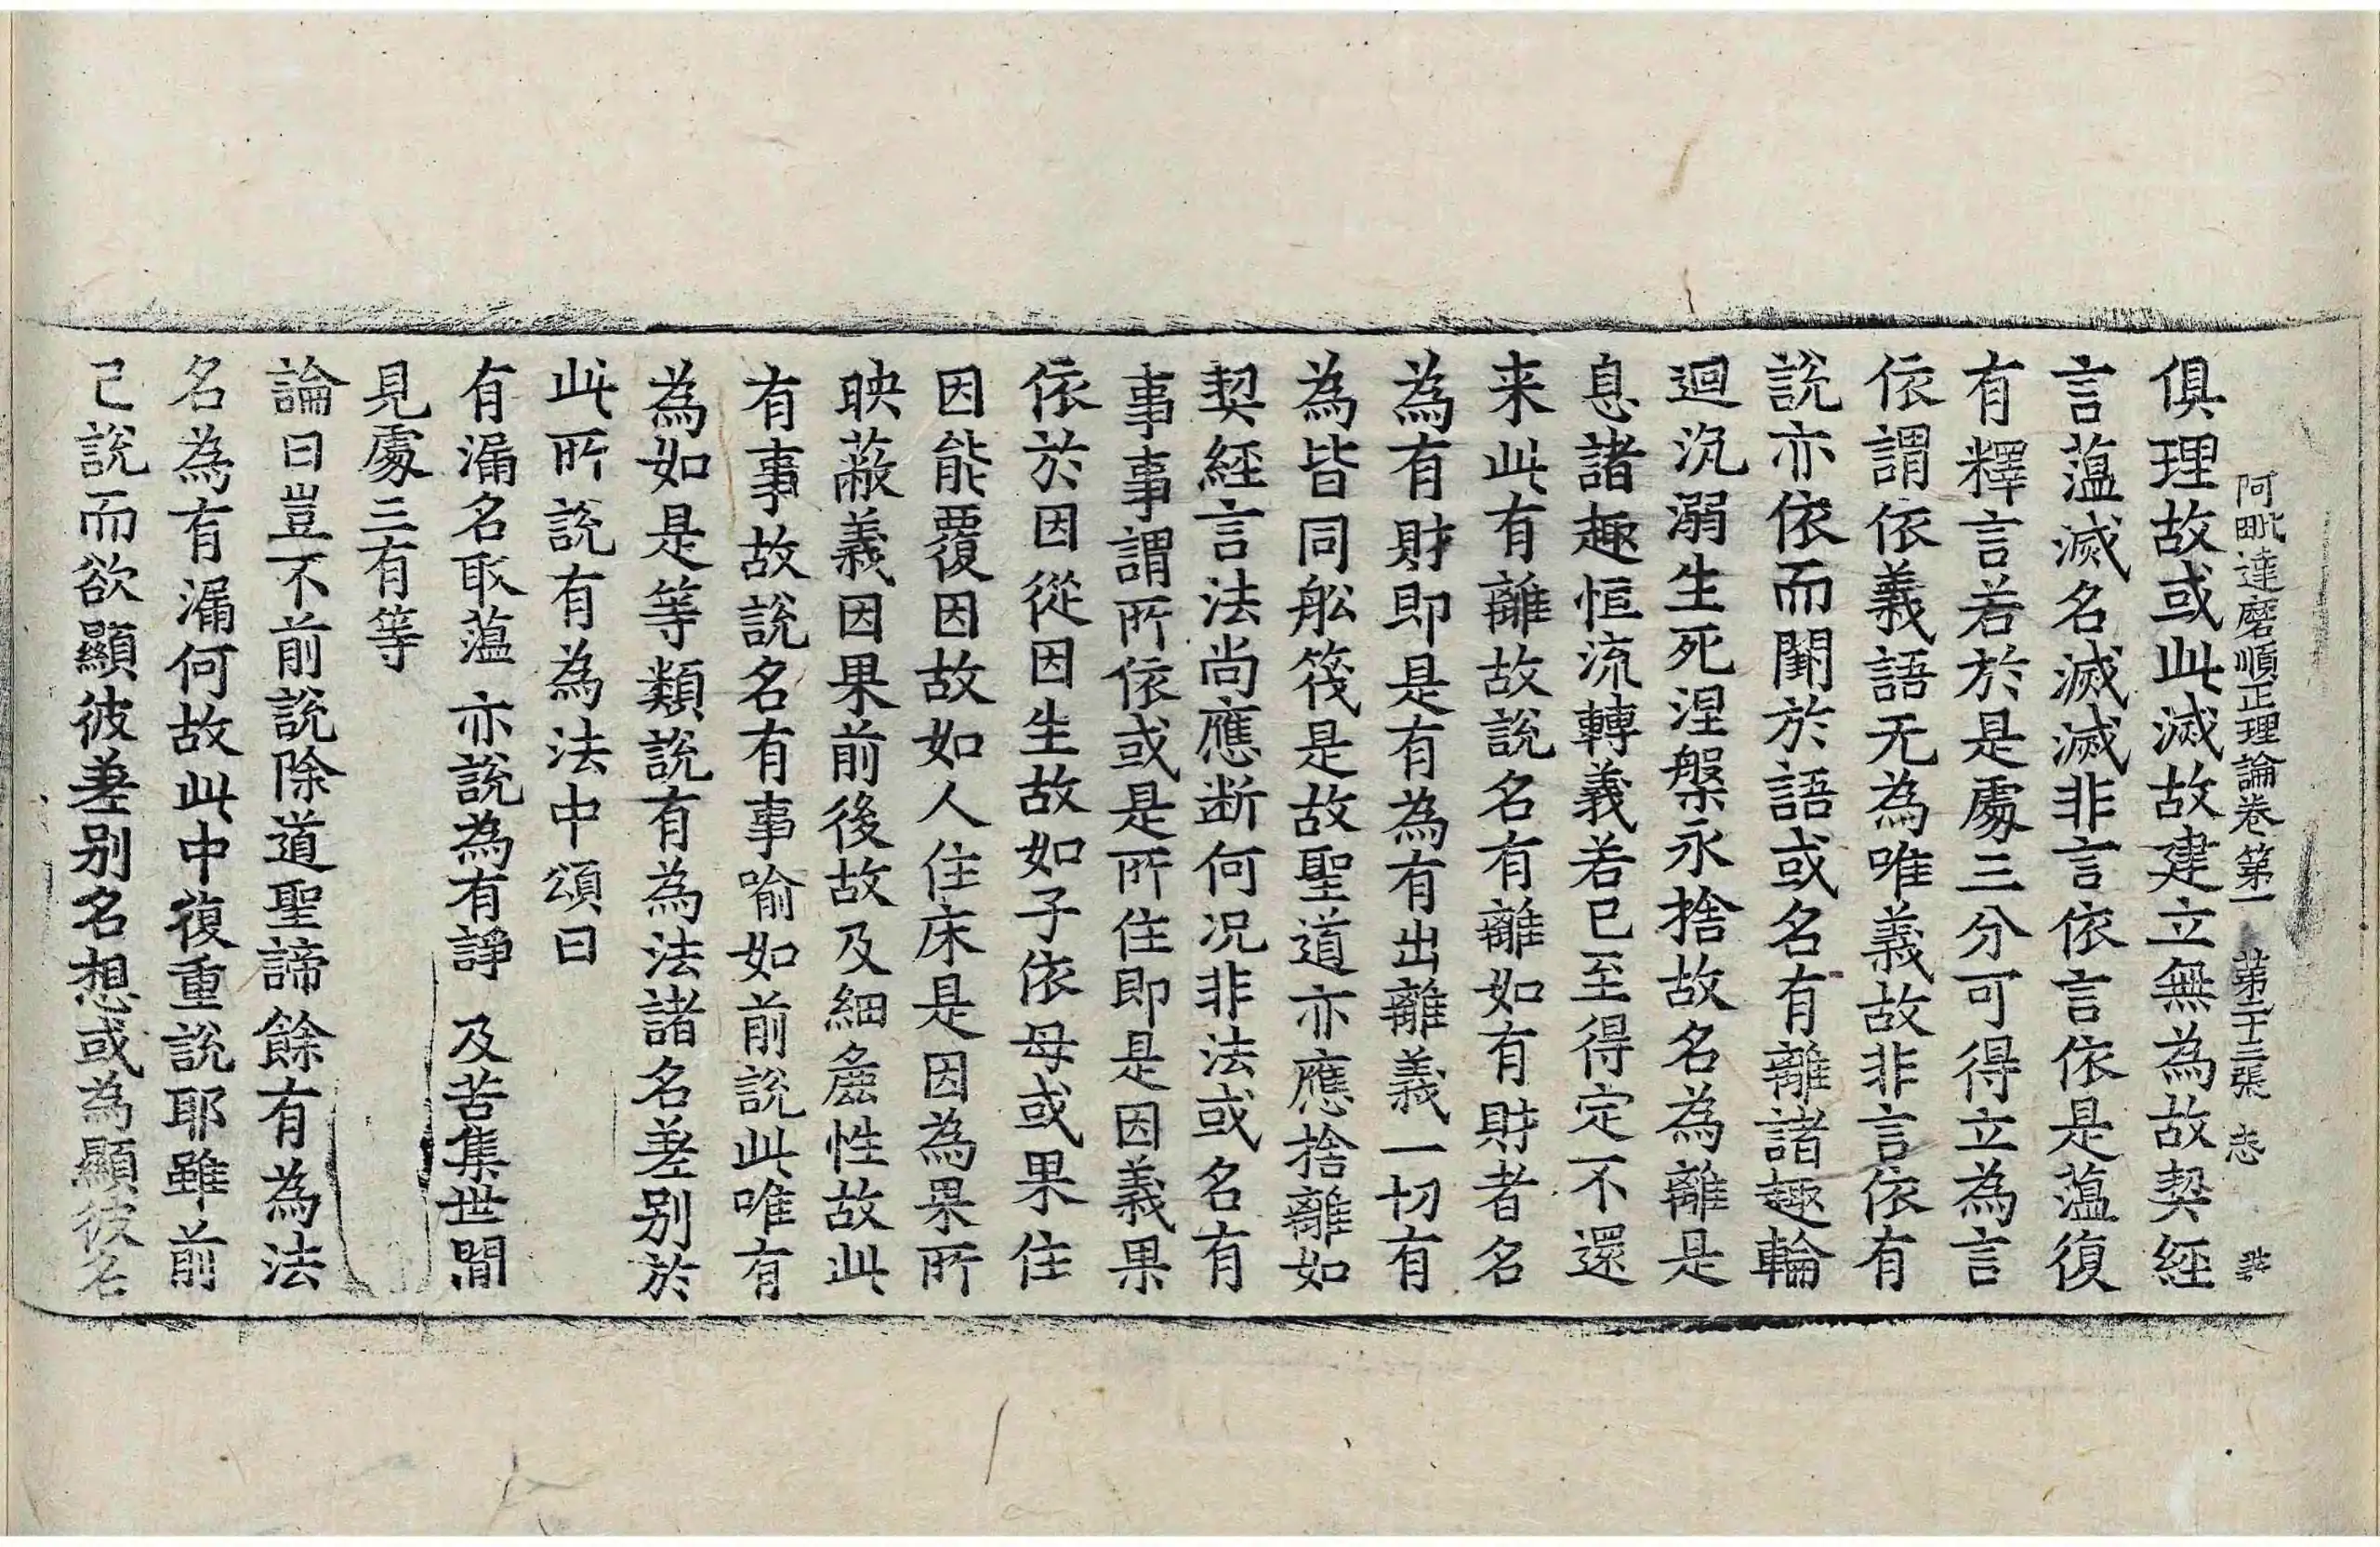 阿毗達磨順正理論卷第一 第二十三張 志
俱理故或此滅故建立無為故契經
言薀滅名滅滅非言依言依是薀復
有釋言若於是處三分可得立為言
依謂依義語无為唯義故非言依有
說亦依而閞於語或名有離諸趣輪
迴沉溺生死涅槃永捨故名為離是
息諸趣恒流轉義若已至得定不還
来此有離故說名有離如有財者名
為有財即是有為有出離義一切有
為皆同舩筏是故聖道亦應捨離如
契經言法尚應断何况非法或名有
事事謂所依或是所住即是因義果
依於因從因生故如子依母或果住
因能覆因故如人住床是因為果所
映蔽義因果前後故及細麁性故此
有事故說名有事喻如前說此唯有
為如是等類說有為法諸名差别於
此所說有為法中頌曰
有漏名取薀 亦說為有諍 及苦集世間
見處三有等
論曰豈不前說除道聖諦餘有為法
名為有漏何故此中復重說耶雖前
已說而欲顯彼差别名想或為顯彼名